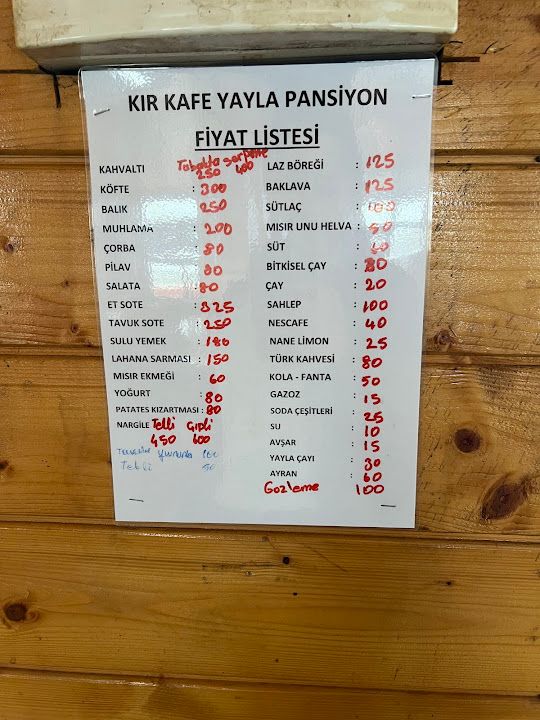 KIR KAFE YAYLA PANSİYON
FİYAT LİSTESİ
Tabakta serpme
KAHVALTI 250 400
KÖFTE : 300
BALIK : 250
MUHLAMA : 200
ÇORBA : 80
PİLAV : 80
SALATA : 80
ET SOTE : 325
TAVUK SOTE : 250
SULU YEMEK : 180
LAHANA SARMASI : 150
MISIR EKMEĞİ : 60
YOĞURT : 80
PATATES KIZARTMASI : 80
NARGİLE Telli Gıpli
450 600
yumurta 100
Tekli 50
LAZ BÖREĞİ : 125
BAKLAVA : 125
SÜTLAÇ : 100
MISIR UNU HELVA :
SÜT :
BİTKİSEL ÇAY : 80
ÇAY : 20
SAHLEP : 100
NESCAFE : 40
NANE LİMON : 25
TÜRK KAHVESİ : 80
KOLA - FANTA : 50
GAZOZ : 15
SODA ÇEŞİTLERİ : 25
SU : 10
AVŞAR : 15
YAYLA ÇAYI : 30
AYRAN : 60
Gozleme 100